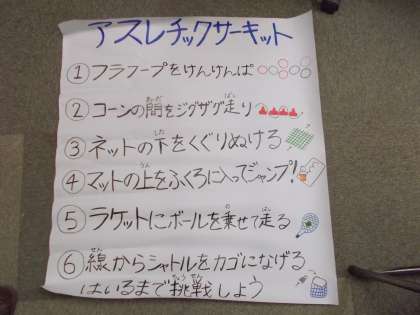 アスレチックサーキット
①フラフープをけんけんぱ
②コーンの間をジグザグ走り
③ネットの下をくぐりぬける
④マットの上をふくろに入ってジャンプ!
⑤ラケットにボールを乗せて走る
⑥線からシャトルをカゴになげる
はいるまで挑戦しよう